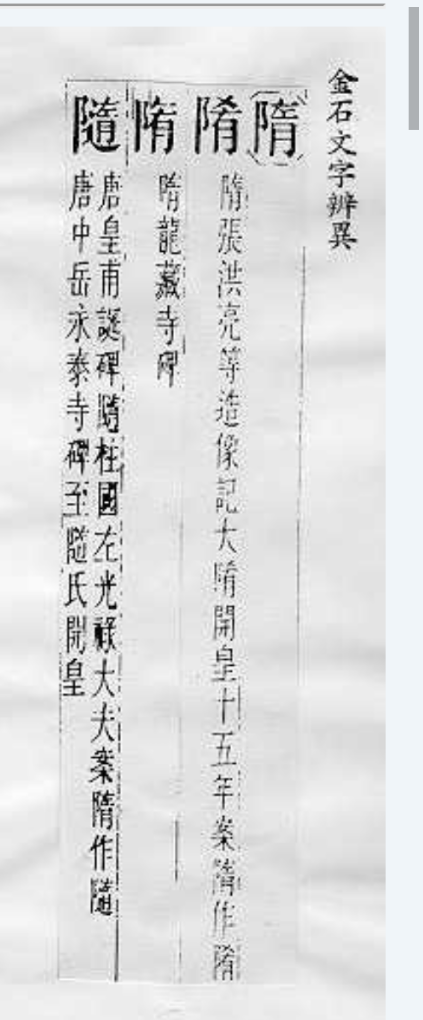 金石文字辨異
隋
隋張洪亮等造像記大隋開皇十五年案隋作
陏
隋龍藏寺碑
隨
唐皇甫誕碑隨柱國左光祿大夫案隋作隨
唐中岳永泰寺碑至隨氏開皇